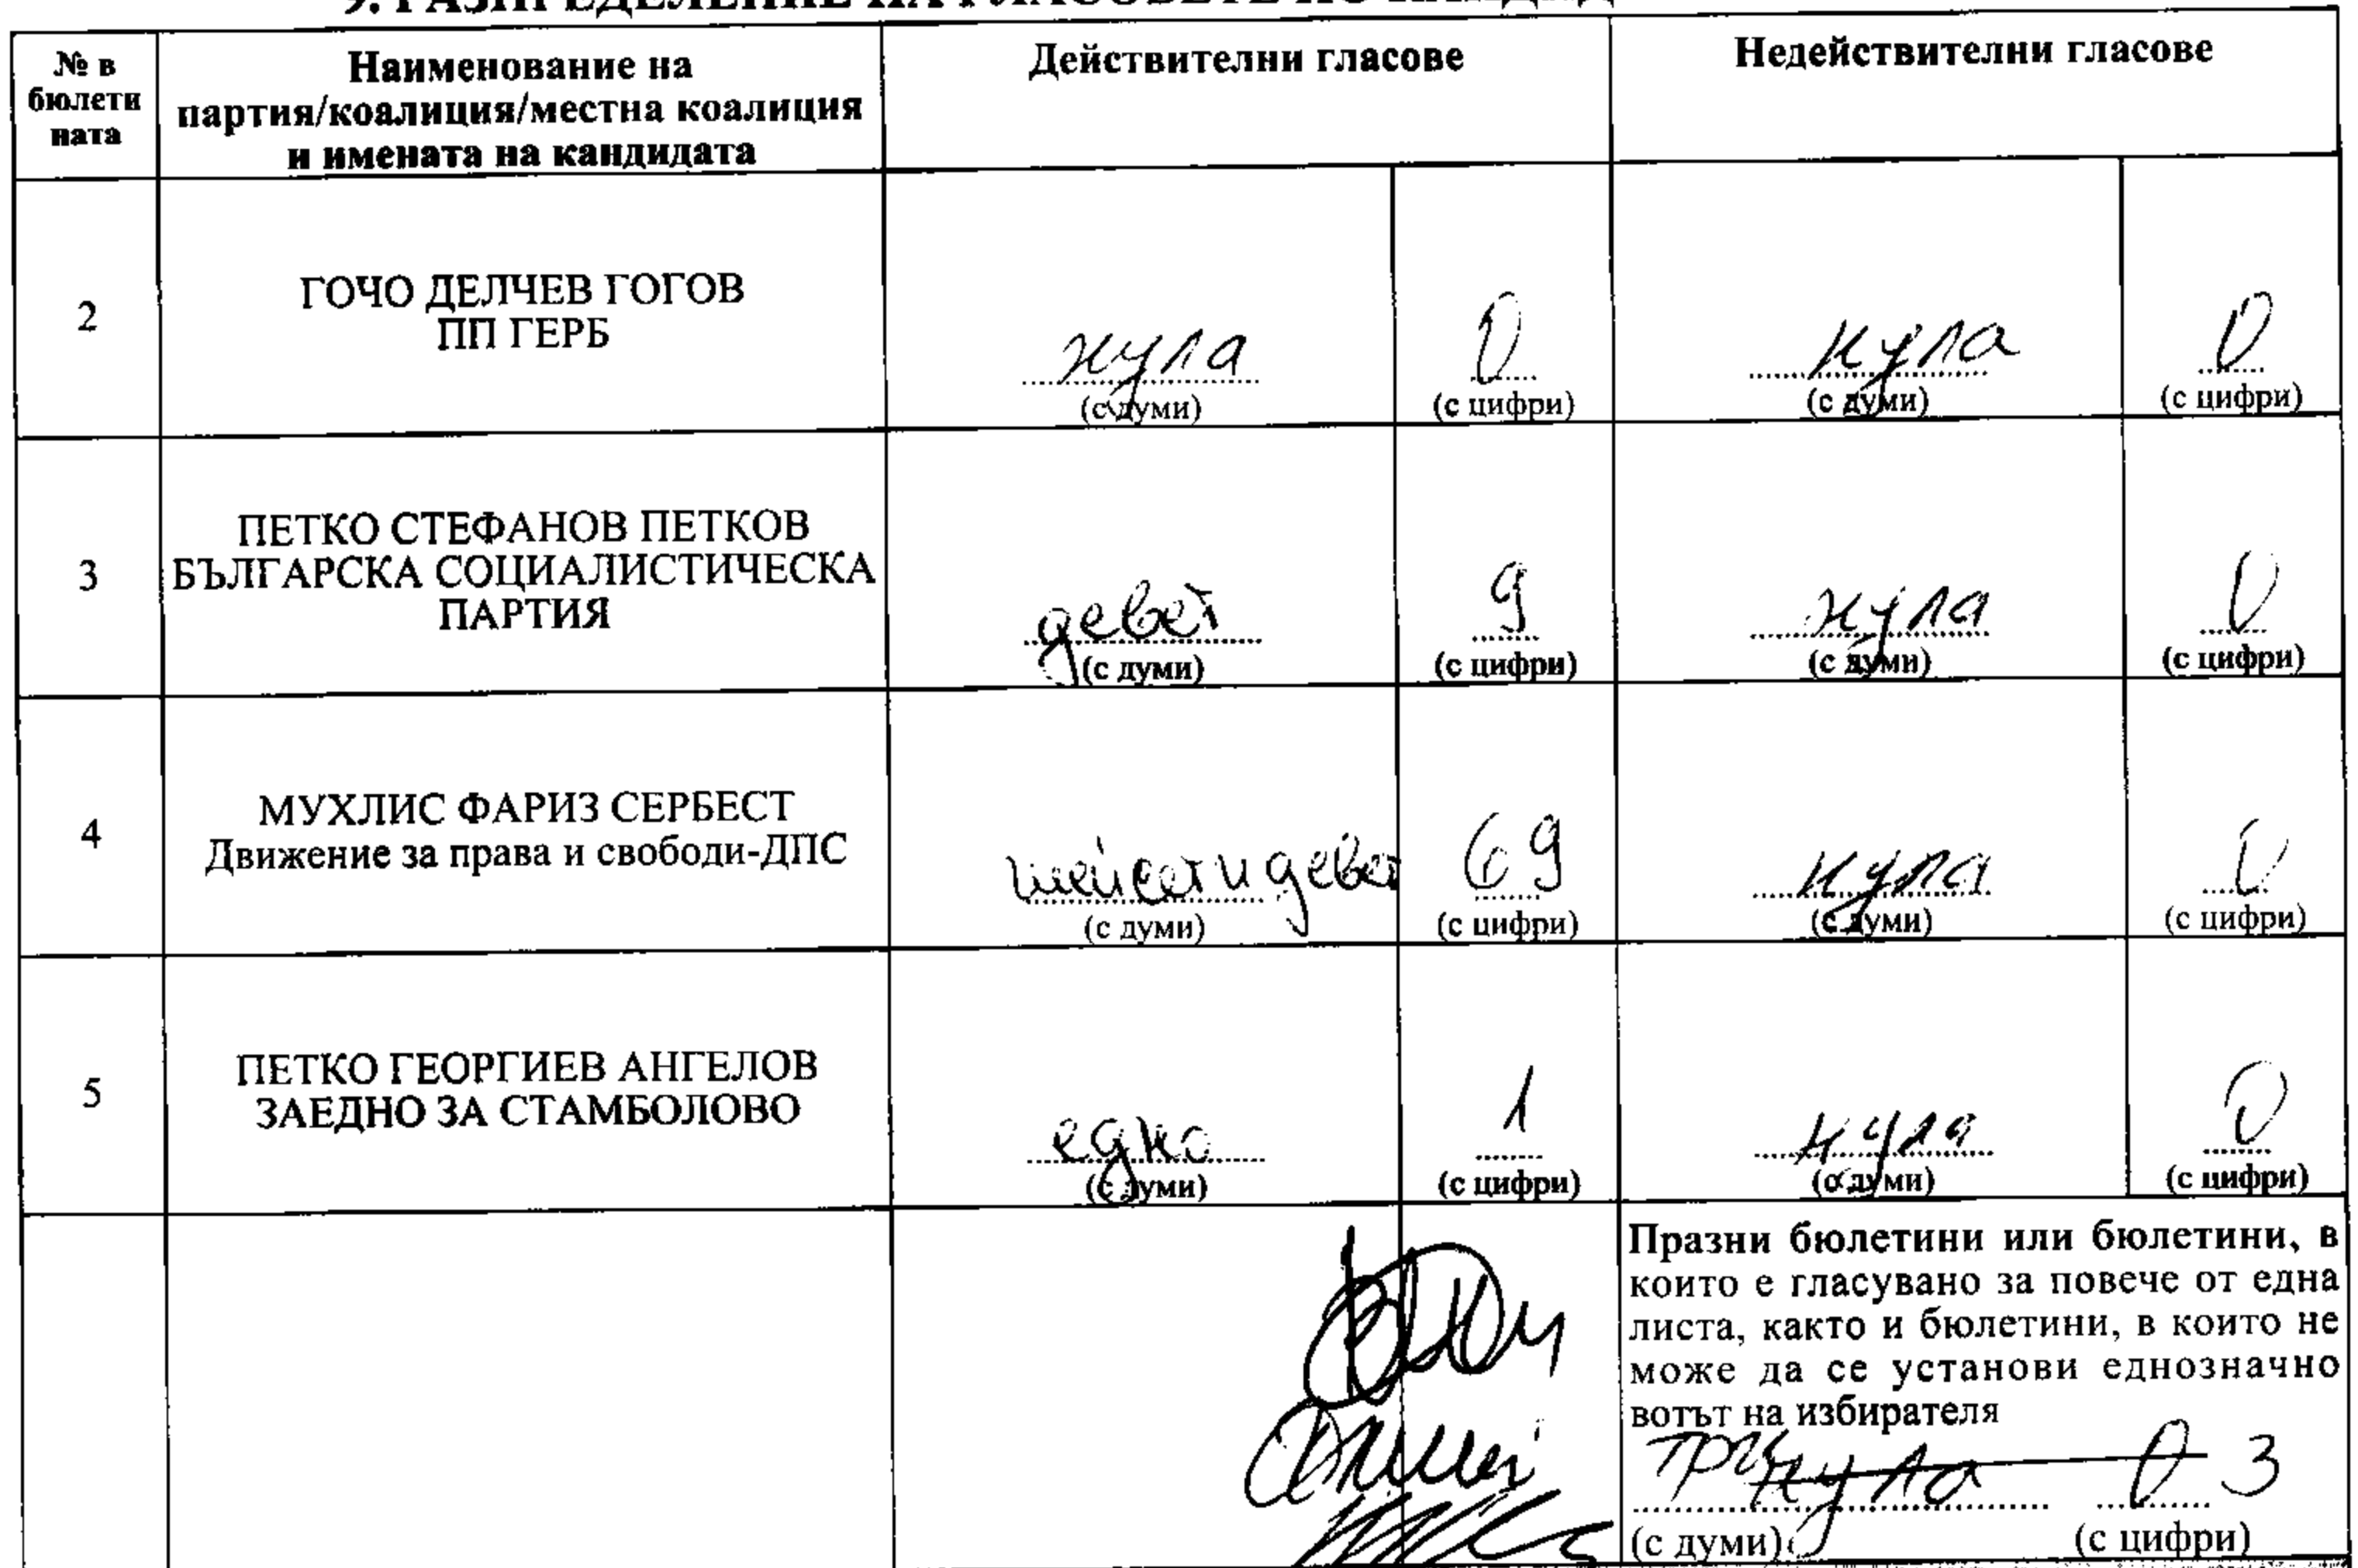 9. РАЗПРЕДЕЛЕНИЕ НА ГЛАСОВЕТЕ ПО КАНДИД
№ в
бюлети
ната
Наименование на
партия/коалиция/местна коалиция
и имената на кандидата
Действителни гласове
Недействителни гласове
2
ГОЧО ДЕЛЧЕВ ГОГОВ
ПП ГЕРБ
нула 0 нула 0
(с думи) (с цифри) (с думи) (с цифри)
3
ПЕТКО СТЕФАНОВ ПЕТКОВ
БЪЛГАРСКА СОЦИАЛИСТИЧЕСКА
ПАРТИЯ
девет 9 нула 0
(с думи) (с цифри) (с думи) (с цифри)
4
МУХЛИС ФАРИЗ СЕРБЕСТ
Движение за права и свободи-ДПС
шейсет и девет 69 нула 0
(с думи) (с цифри) (с думи) (с цифри)
5
ПЕТКО ГЕОРГИЕВ АНГЕЛОВ
ЗАЕДНО ЗА СТАМБОЛОВО
едно 1 нула 0
(с думи) (с цифри) (с думи) (с цифри)
Празни бюлетини или бюлетини, в
които е гласувано за повече от една
листа, както и бюлетини, в които не
може да се установи еднозначно
вотът на избирателя
три нула 0 3
(с думи) (с цифри)